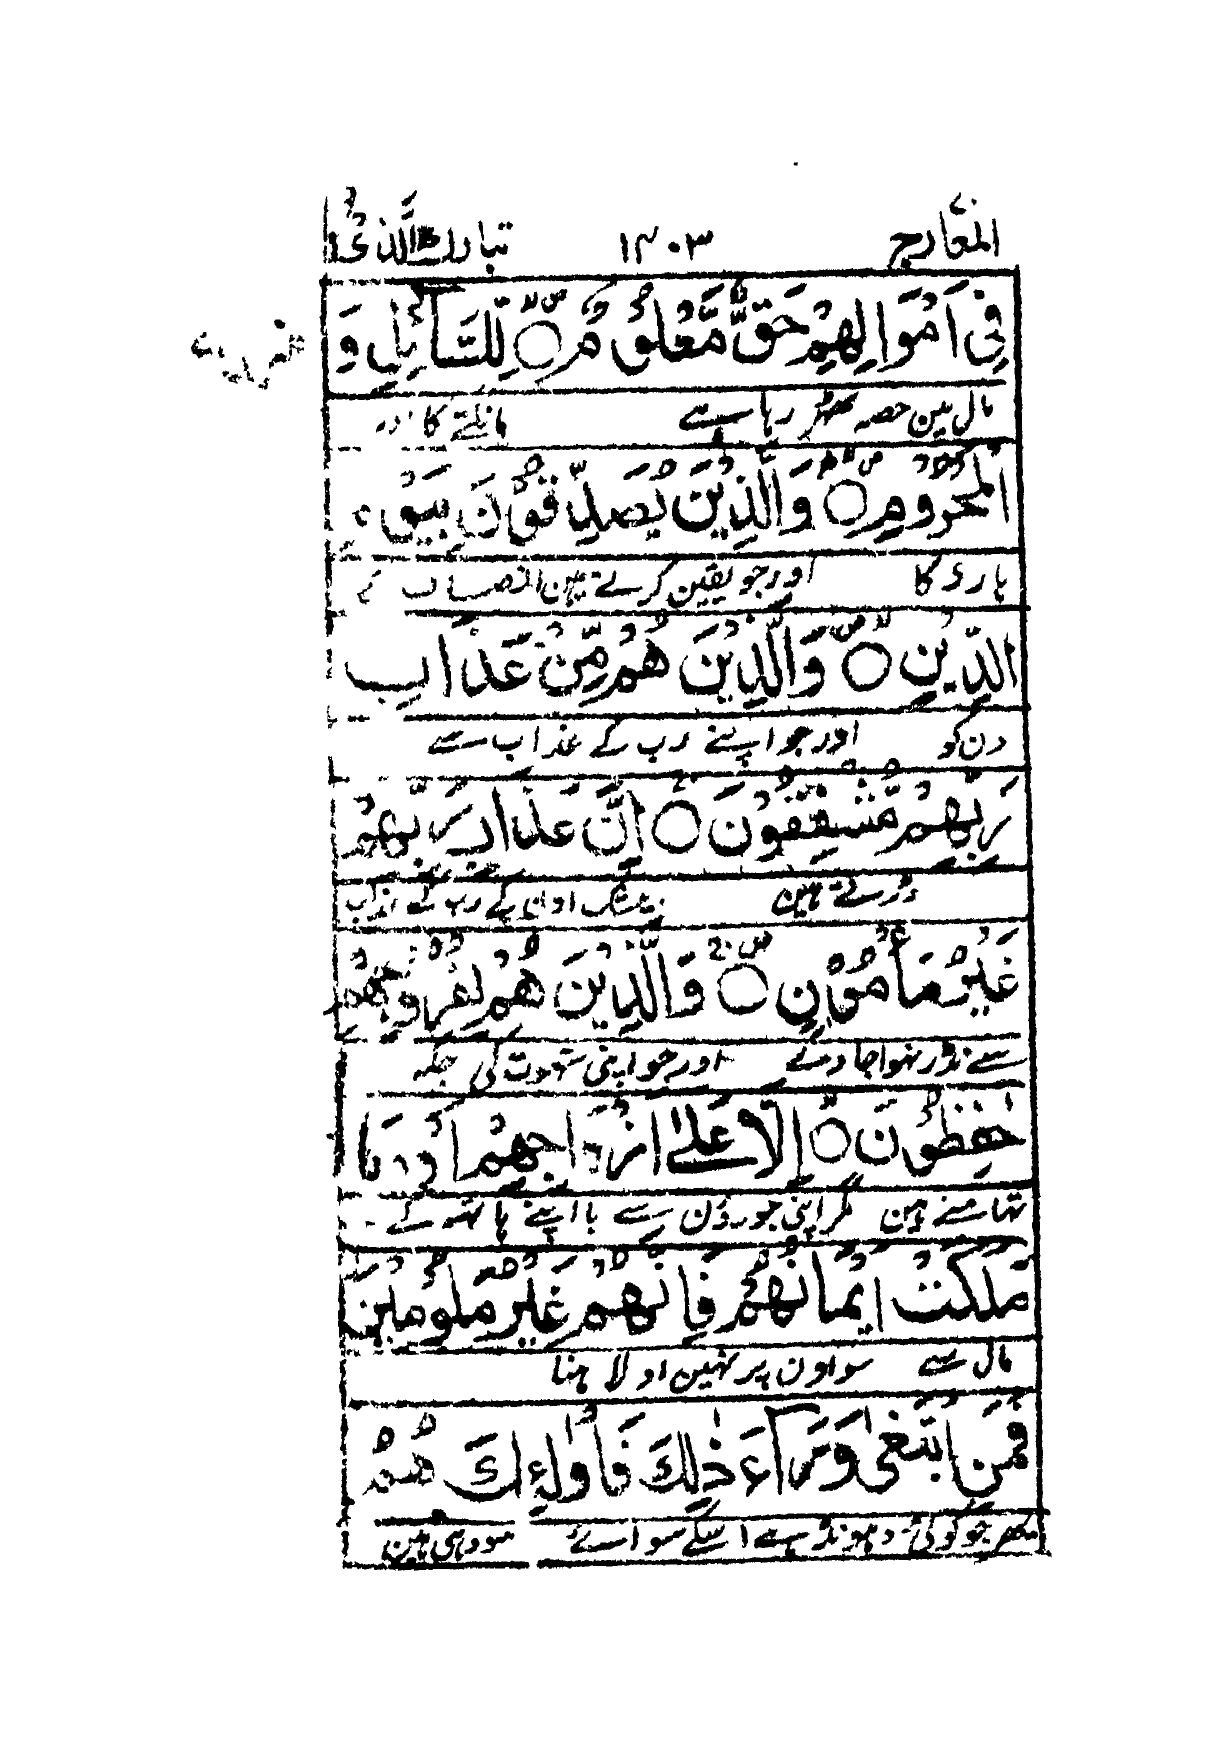 المعارج ۱۴۰۳ تبارك الذی
فِیْ اَمْوَالِهِمْ حَقٌّ مَّعْلُوْمٌ ○ لِّلسَّآئِلِ وَ
مال مین حصہ ٹھر رہا ہے مانگتے کا اور
الْمَحْرُوْمِ ○ وَالَّذِیْنَ یُصَدِّقُوْنَ بِیَوْمِ
ہارے کا اور جو یقین کرتے ہین انصاف کے
الدِّیْنِ ○ وَالَّذِیْنَ هُمْ مِّنْ عَذَابِ
دن کو اور جو اپنے رب کے عذاب سے
رَبِّهِمْ مُّشْفِقُوْنَ ○ اِنَّ عَذَابَ رَبِّهِمْ
ڈرتے ہین بیشک اون کے رب کے عذاب
غَیْرُ مَاْمُوْنٍ ○ وَالَّذِیْنَ هُمْ لِفُرُوْجِهِمْ
سے نڈر نہوا چاہئے اور جو اپنی شہوت کی جگہ
حٰفِظُوْنَ ○ اِلَّا عَلٰی اَزْوَاجِهِمْ اَوْ مَا
تھامتے ہین مگر اپنی جورؤن سے یا اپنے ہاتھ کے
مَلَكَتْ اَیْمَانُهُمْ فَاِنَّهُمْ غَیْرُ مَلُوْمِیْنَ
مال سے سو اون پر نہین اولاہنا
فَمَنِ ابْتَغٰی وَرَآءَ ذٰلِكَ فَاُولٰٓئِكَ هُمُ
پھر جو کوئی ڈہونڈہے اسکے سوائے سو وہی ہین